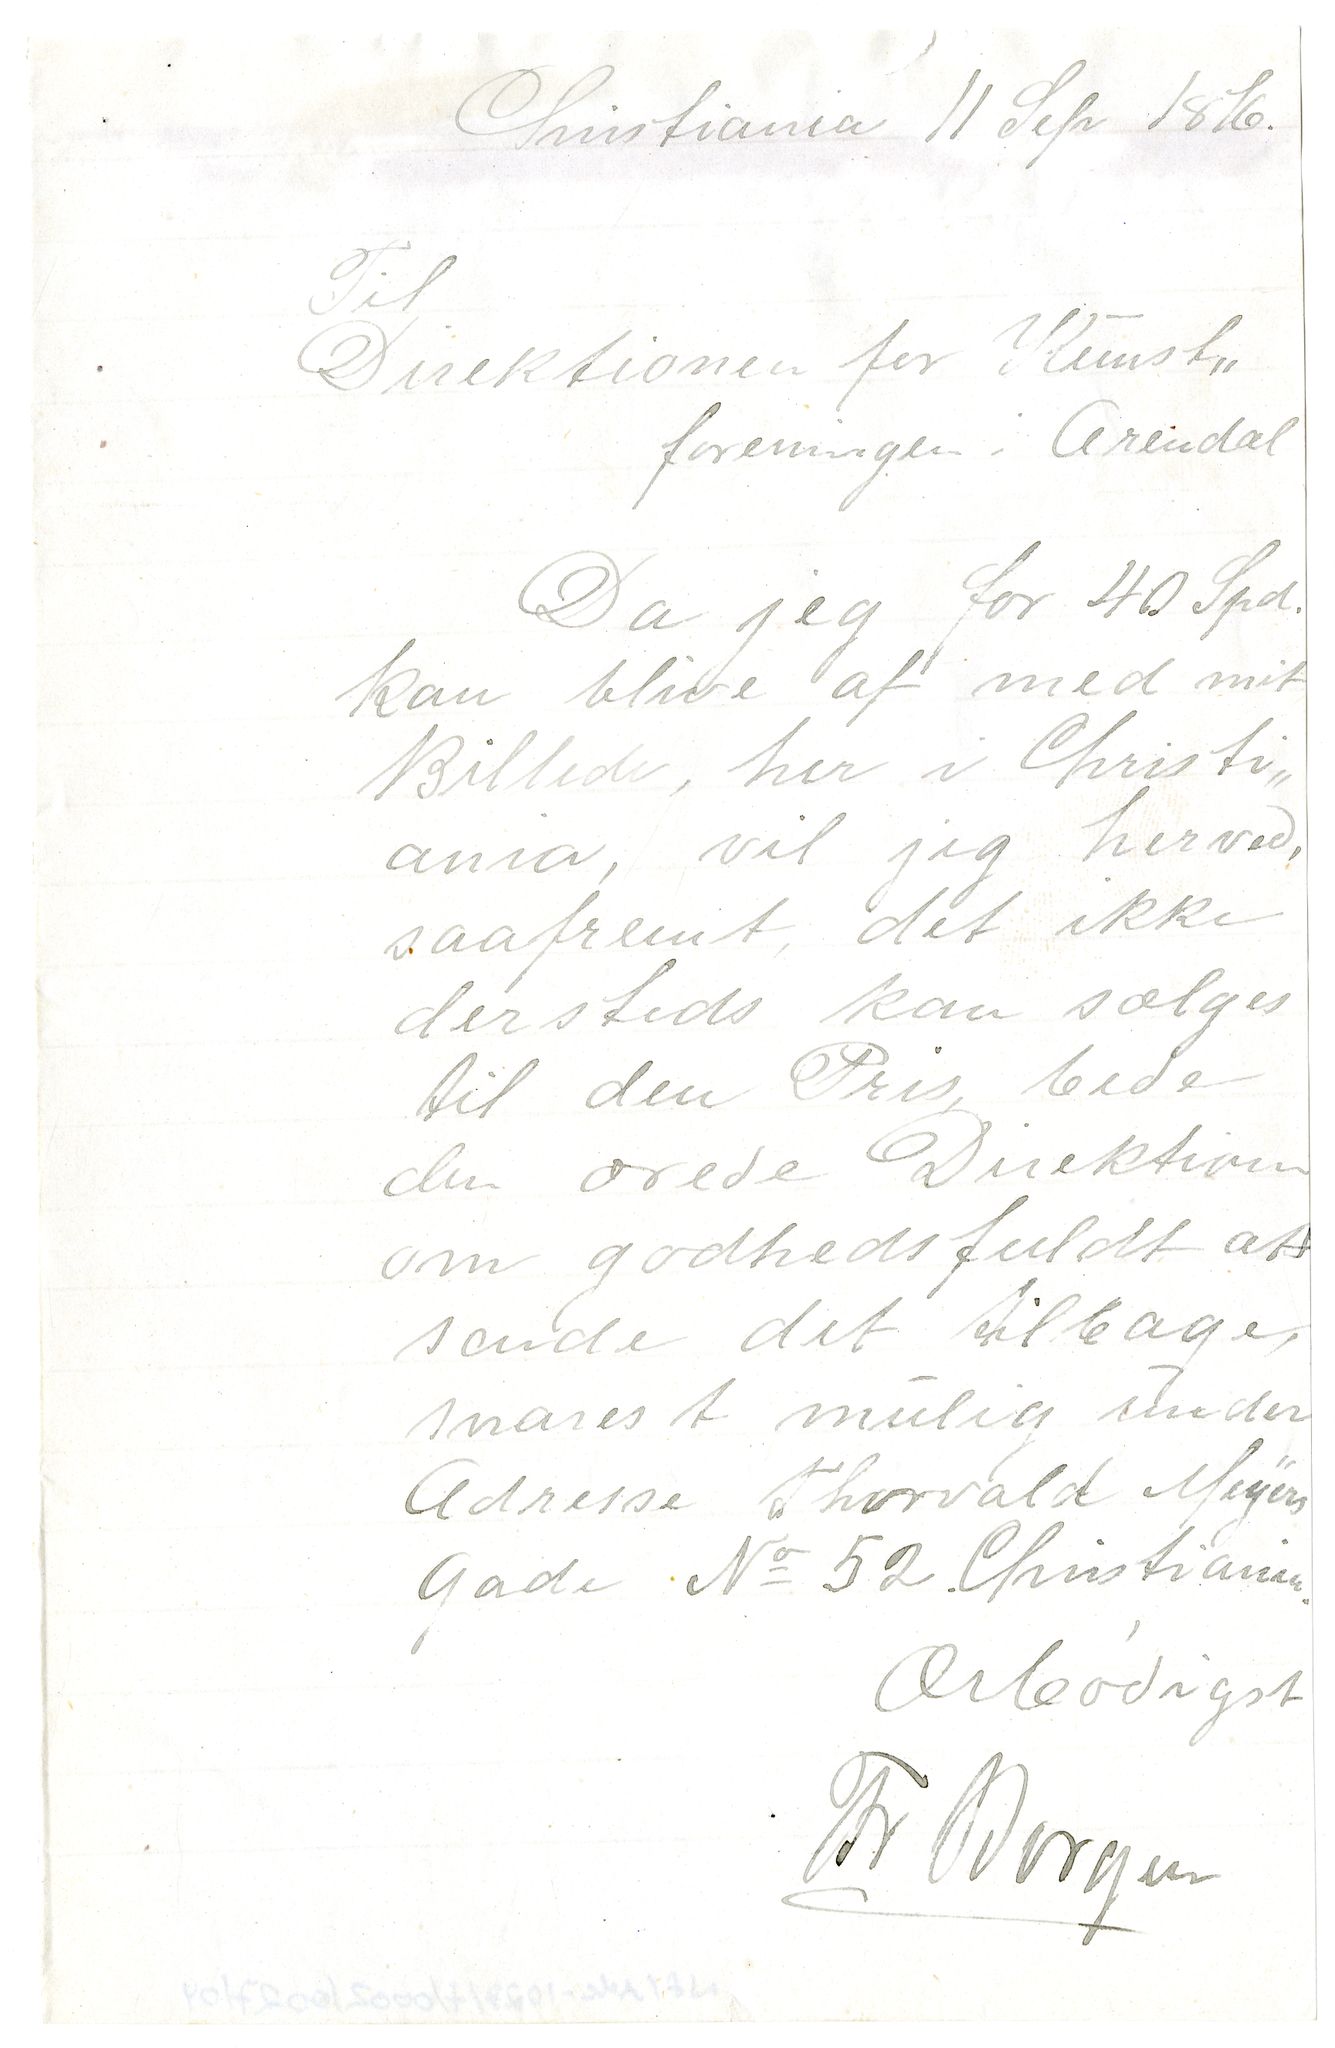 Christiania 11 Sep 1876.
Til
Direktionen for Kunst„
foreningen i Arendal
Da jeg for 40 Spd.
kan blive af med mit
Billede, her i Christi„
ania, vil jeg herved,
saafremt, det ikke
dersteds kan sælges
til den Pris, bede
den ærede Direktion
om godhedsfuldt at
sende det tilbage,
snarest mulig under
Adresse Thorvald Meyers
Gade No 52 Christiania.
Ærbødigst
Fr Borgen